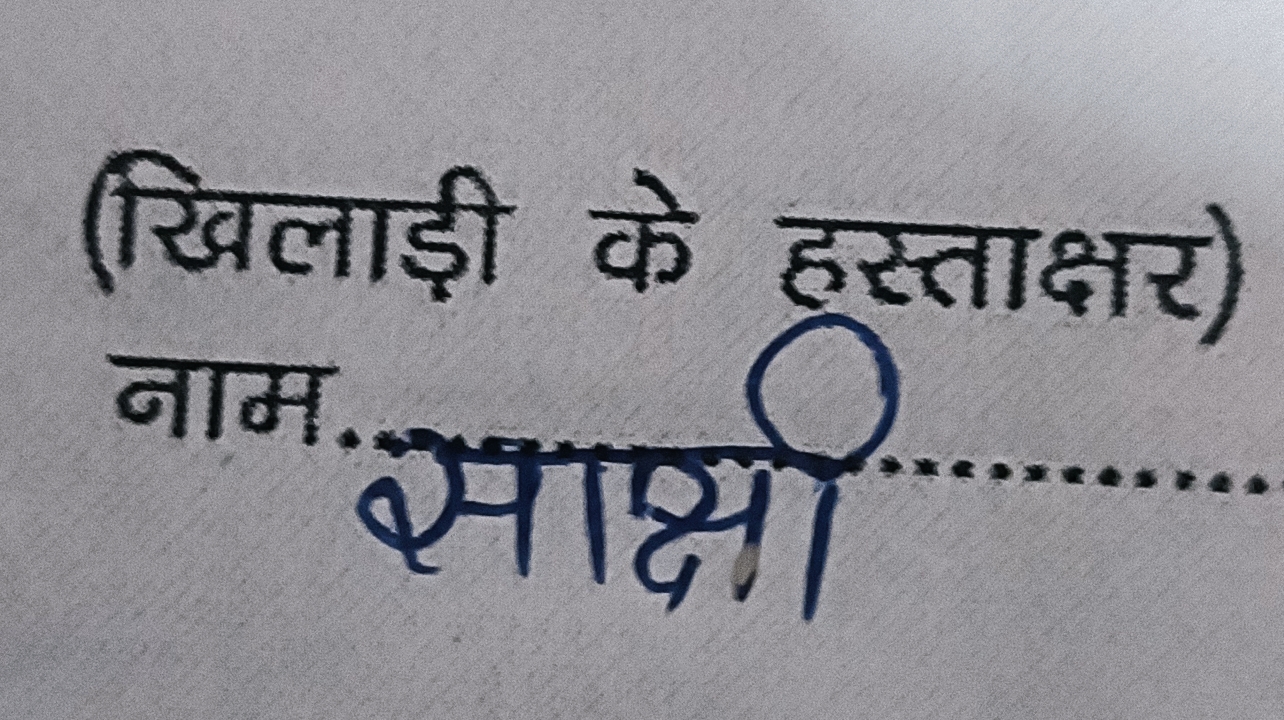 (खिलाड़ी के हस्ताक्षर)
नाम..साक्षी..........